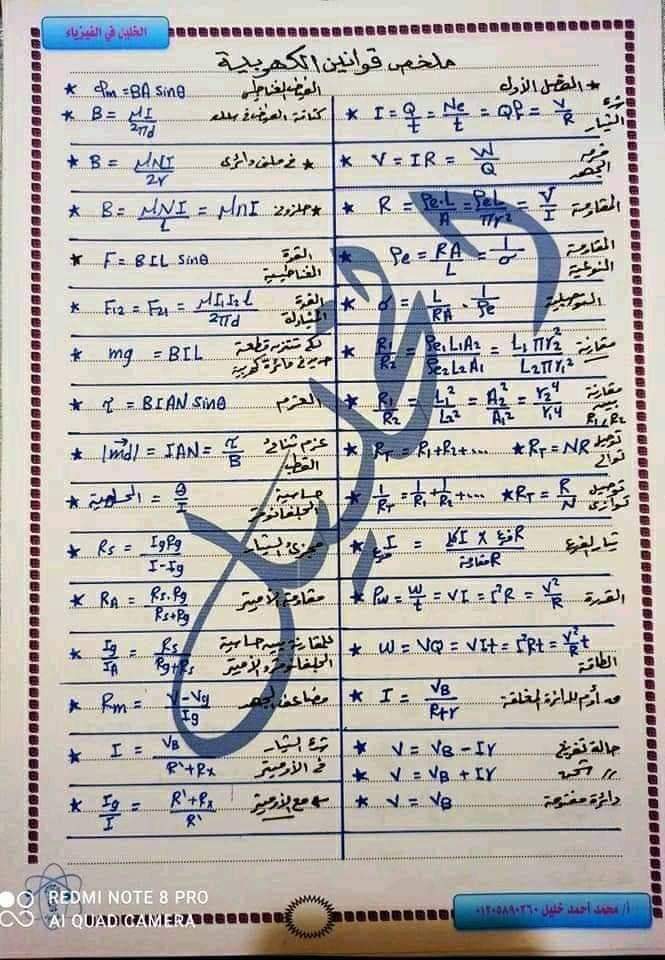 الخليل في الفيزياء
ملخص قوانين الكهربية
* الفصل الأول
شدة التيار * I = Q/t = Ne/t = Qf = V/R
فرق الجهد * V = IR = W/Q
المقاومة * R = ρe.L/A = ρeL/πr² = V/I
المقاومة النوعية * ρe = RA/L = 1/σ
التوصيلية * σ = L/RA . 1/ρe
مقارنة * R1/R2 = ρe1L1A2/ρe2L2A1 = L1πr2²/L2πr1²
مقارنة بين R1، R2 * R1/R2 = L1²/L2² = A2²/A1² = r2⁴/r1⁴
توصيل توالى * RT = R1+R2+... * RT = NR
توصيل توازى * 1/RT = 1/R1+1/R2+... * RT = R/N
تيار الفرع * I فرع = I كلي × R فرع / R مقاومة
القدرة * Pw = W/t = VI = I²R = V²/R
الطاقة * W = VQ = VIt = I²Rt = V²/R t
ق أوم للدائرة المغلقة * I = VB/R+r
حالة تفريغ * V = VB - Ir
// شحن * V = VB + Ir
دائرة مفتوحة * V = VB
الفيض المغناطيسي * φm = BA sinθ
كثافة الفيض في سلك * B = μI/2πd
* في ملف دائرى * B = μNI/2r
* حلزونى * B = μNI/L = μnI
القوة المغناطيسية * F = BIL sinθ
القوة المتبادلة * F12 = F21 = μI1I2L/2πd
* mg = BIL
العزم * τ = BIAN sinθ
عزم ثنائى القطب * |md| = IAN = τ/B
حساسية الجلفانومتر * الحساسية = θ/I
مجزئ التيار * Rs = IgRg/I-Ig
مقاومة الأميتر * RA = Rs.Rg/Rs+Rg
للمقارنة بين حساسية الجلفانومتر والأميتر * Ig/IA = Rs/Rg+Rs
مضاعف الجهد * Rm = V-Vg/Ig
شدة التيار في الأوميتر * I = VB/R'+Rx
مع الأوميتر * Ig/I = R'+Rx/R'
REDMI NOTE 8 PRO
AI QUAD CAMERA
أ/ محمد أحمد خليل ٠١٢٠٥٨٩٠٢٦٠